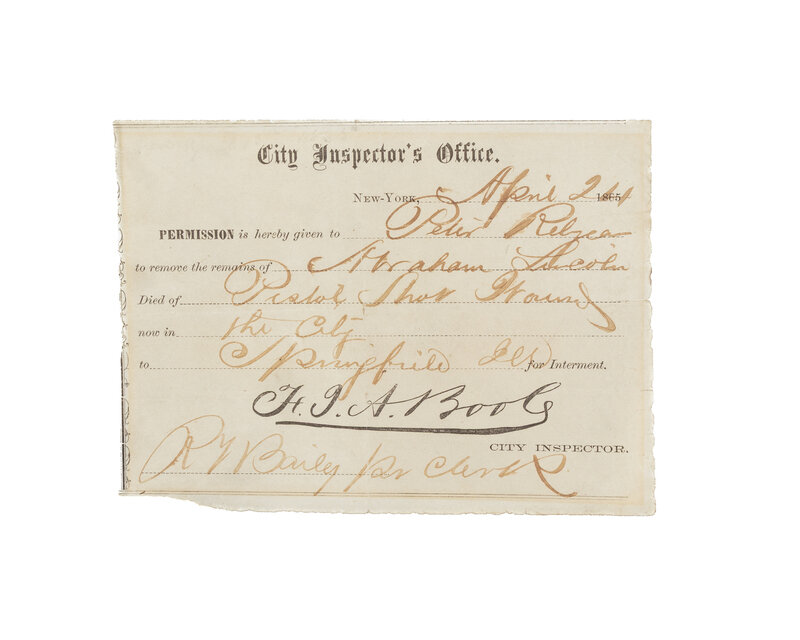 City Inspector's Office.
New-York, April 24 1865
PERMISSION is hereby given to Peter Relyea
to remove the remains of Abraham Lincoln
Died of Pistol Shot Wound
now in the City
to Springfield Ills for Interment.
F. I. A. Boole
CITY INSPECTOR.
R Baily pr Clerk